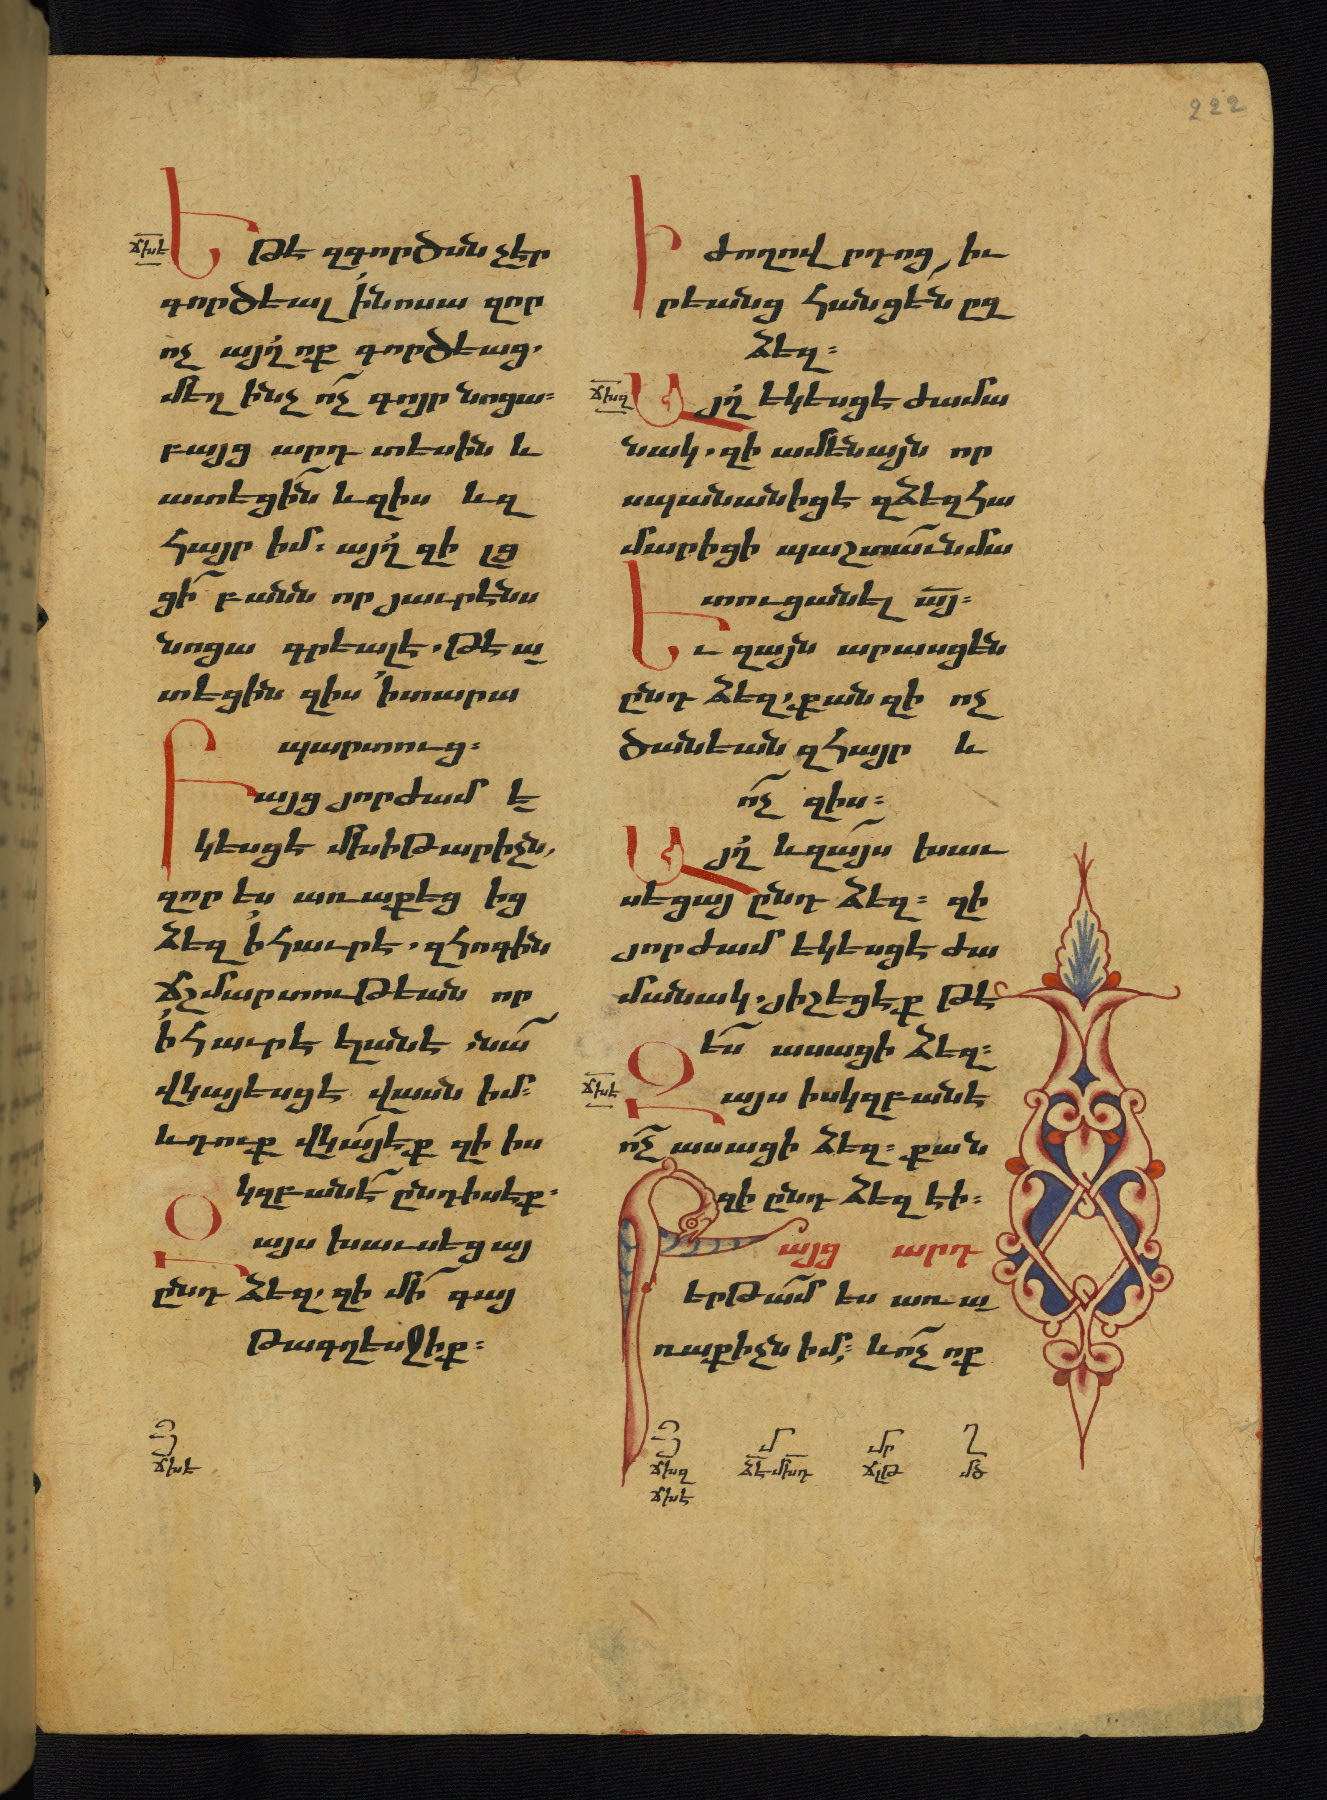 222
ճխե
Եթէ զգործսն չէր
գործեալ ի նոսա զոր
ոչ այղ ոք գործեաց,
մեղ ինչ ոչ գոյր նոցա։
բայց արդ տեսին և
ատեցին և զիս և զ
հայր իմ։ այղ զի լց
ցի բանն որ յաւրէնս
նոցա գրեալ է, թէ ա
տեցին զիս ի տարա
պարտուց։
Բայց յորժամ ե
կեսցէ մխիթարիչն,
զոր ես առաքեց ից
ձեզ ի հաւրէ, զհոգին
ճշմարտութեան որ
ի հաւրէ ելանէ, նա
վկայեսցէ վասն իմ։
և դուք վկայէք զի իս
կզբանէ ընդ իս էք։
Զայս խաւսեցայ
ընդ ձեզ, զի մի գայ
թագղեսջիք։
Ի ժողովրդոց, իւ
րեանց հանցեն ըզ
ձեզ։
ճխզ
Այղ եկեսցէ ժամա
նակ, զի ամենայն որ
սպանանիցէ զձեզ հա
մարիցի պաշտաւն մա
տուցանել այ։
Եւ զայն արասցեն
ընդ ձեզ, քանզի ոչ
ծանեան զհայր և
ոչ զիս։
Այղ և զայս խաւ
սեցայ ընդ ձեզ։ զի
յորժամ եկեսցէ ժա
մանակ, յիշեցէք թէ
ես ասացի ձեզ։
ճխէ
Զայս իսկզբանէ
ոչ ասացի ձեզ։ քան
զի ընդ ձեզ էի։
Բայց արդ
երթամ ես առ ա
ռաքիչն իմ, և ոչ ոք
ճխե
ճխզ
ճխէ
մ
մր
ճլթ
ղ
մծ